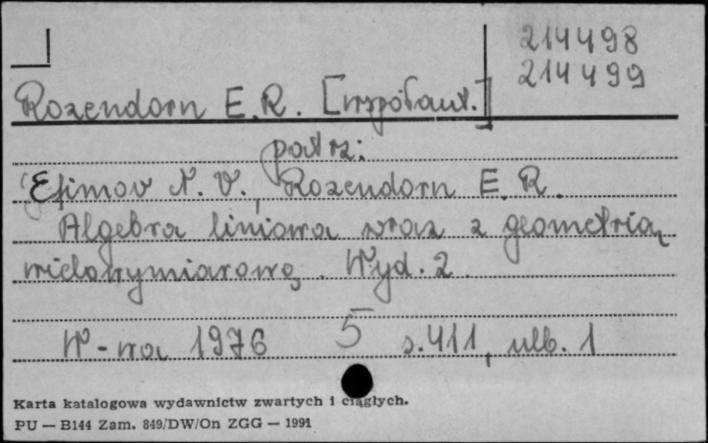 214498
214499
Rozendorn E.R. [współaut.]
patrz:
Efimov N. V., Rozendorn E. R.
Algebra liniowa wraz z geometrią
wielowymiarową. Wyd. 2.
W-wa 1976 5 s. 411, nlb. 1
Karta katalogowa wydawnictw zwartych i ciągłych.
PU — B144 Zam. 849/DW/On ZGG — 1991